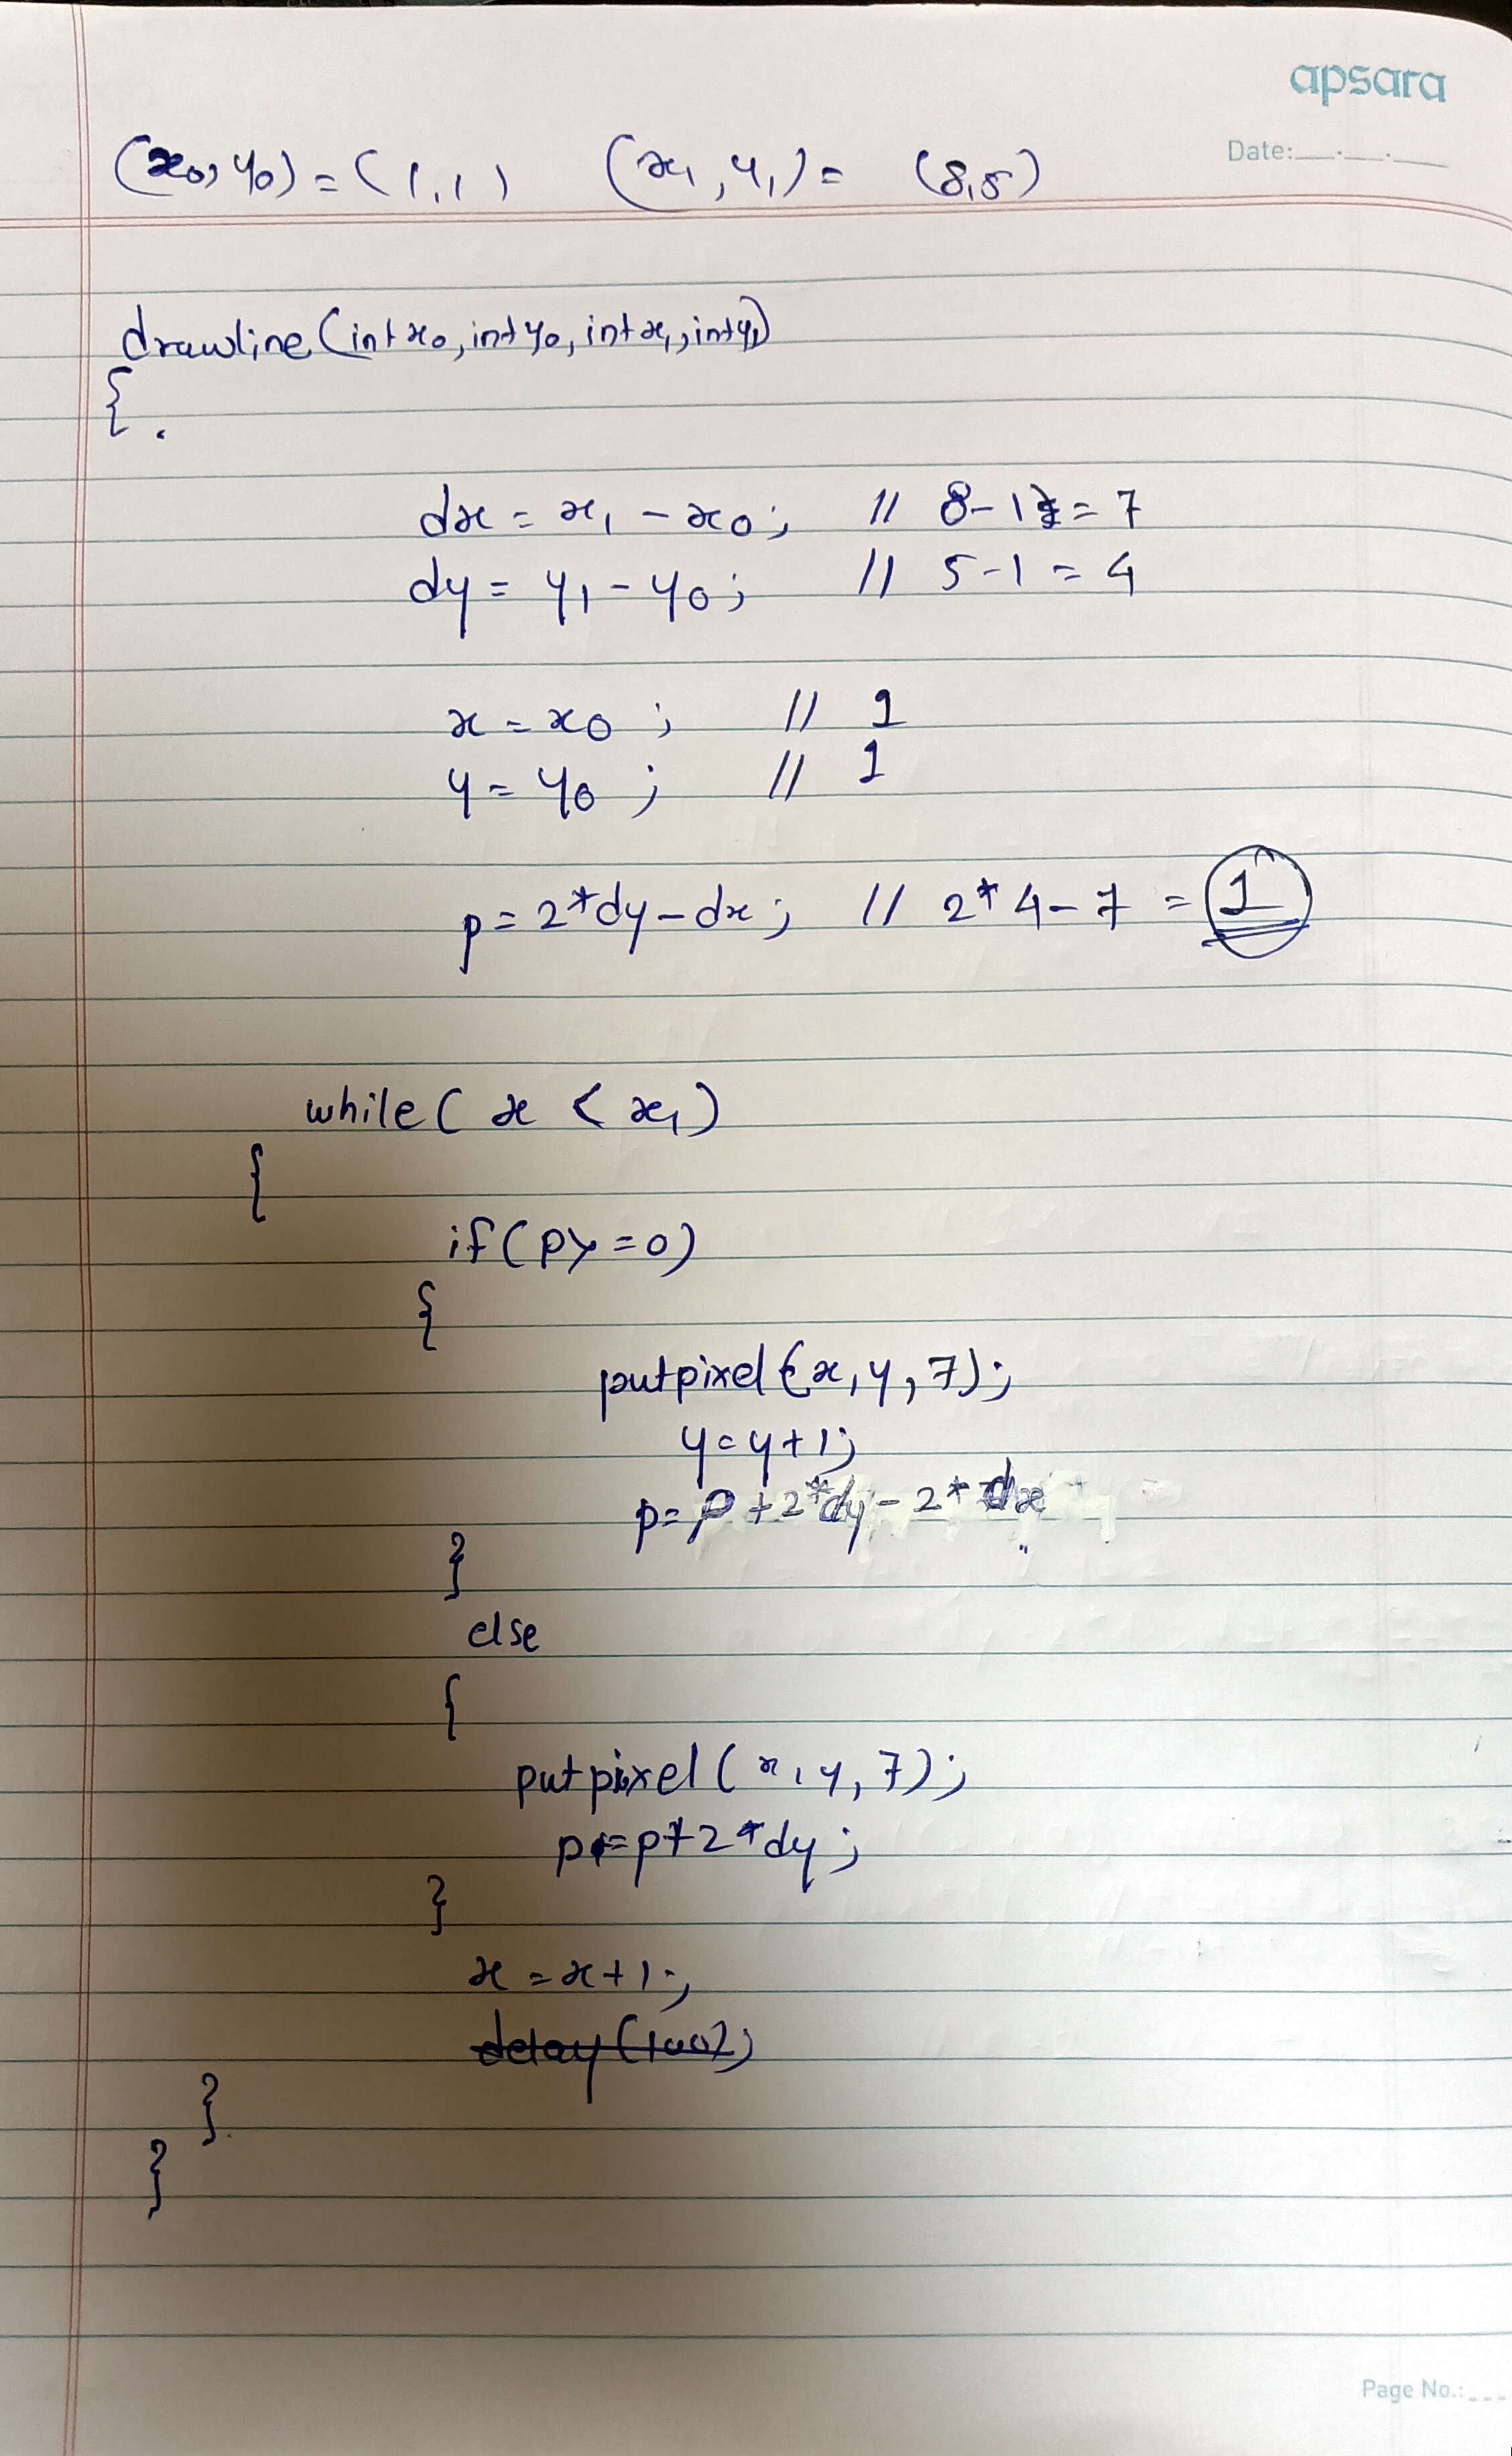 apsara
Date:__.__.__
(x0, y0) = (1,1) (x1, y1) = (8,5)
drawline(int x0, int y0, int x1, int y1)
{
dx = x1 - x0; // 8-1 = 7
dy = y1 - y0; // 5-1 = 4
x = x0; // 1
y = y0; // 1
p = 2*dy - dx; // 2*4-7 = 1
while( x < x1)
{
if(p>=0)
{
putpixel(x,y,7);
y=y+1;
p=p+2*dy-2*dx
}
else
{
putpixel(x,y,7);
p=p+2*dy;
}
x=x+1;
delay(100);
}
}
Page No.:___